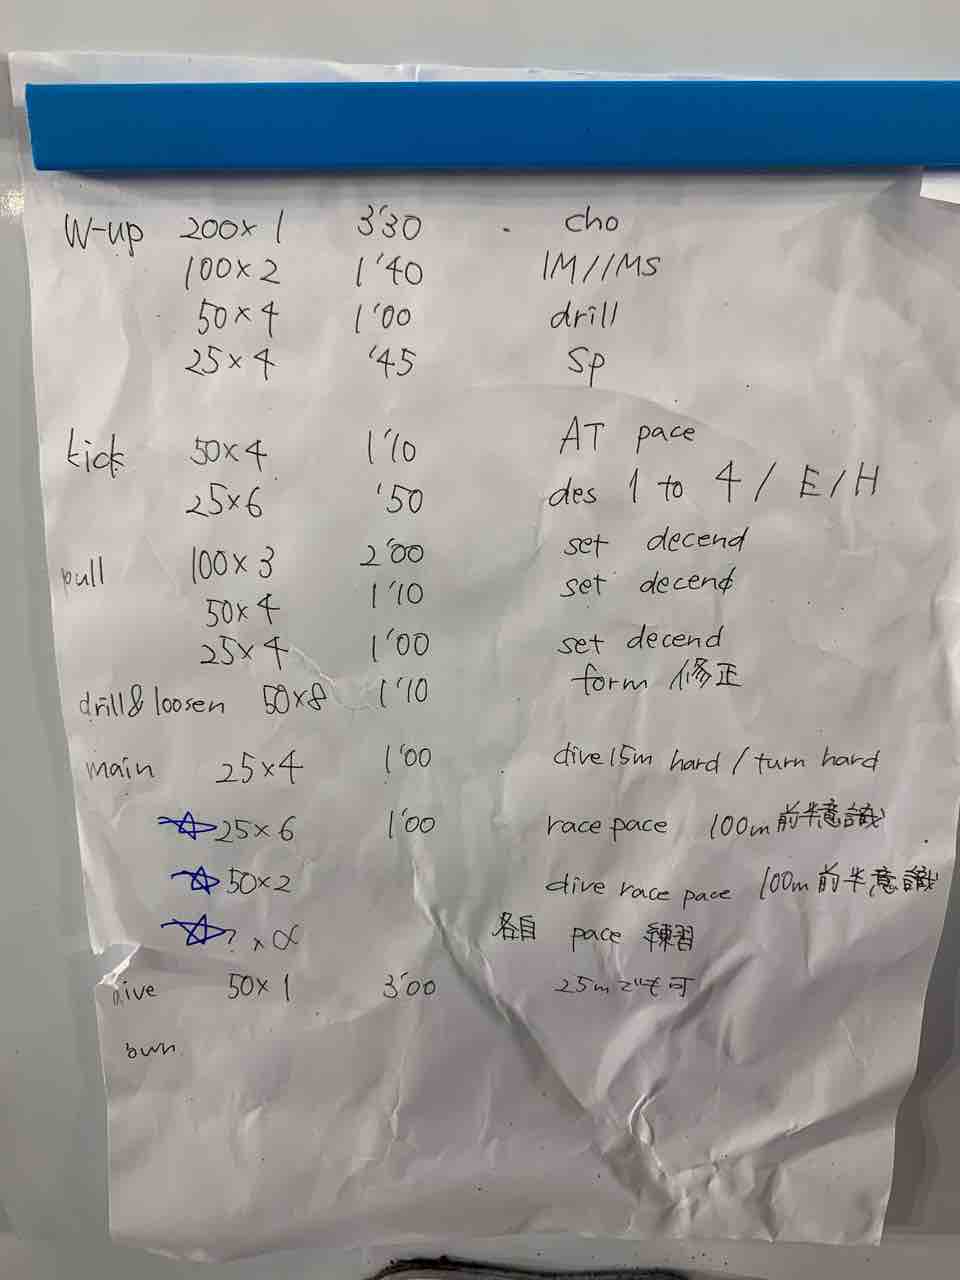 W-up 200×1 3'30 cho
100×2 1'40 IM//IMS
50×4 1'00 drill
25×4 '45 Sp
kick 50×4 1'10 AT pace
25×6 '50 des 1 to 4 / E/H
pull 100×3 2'00 set decend
50×4 1'10 set decend
25×4 1'00 set decend
drill&loosen 50×8 1'10 form 修正
main 25×4 1'00 dive15m hard / turn hard
☆25×6 1'00 race pace 100m前半意識
☆50×2 dive race pace 100m前半意識
☆?×α 各自 pace 練習
dive 50×1 3'00 25mでも可